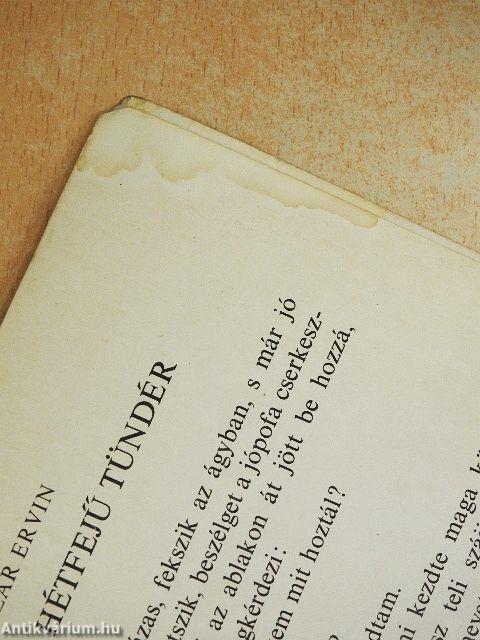 ZÁR ERVIN
HÉTFEJŰ TÜNDÉR
zas, fekszik az ágyban, s már jó
tszik, beszélget a jópofa cserkesz-
az ablakon át jött be hozzá,
gkérdezi:
em mit hoztál?
dtam.
i kezdte maga kö
az teli száj
Antikvárium.hu